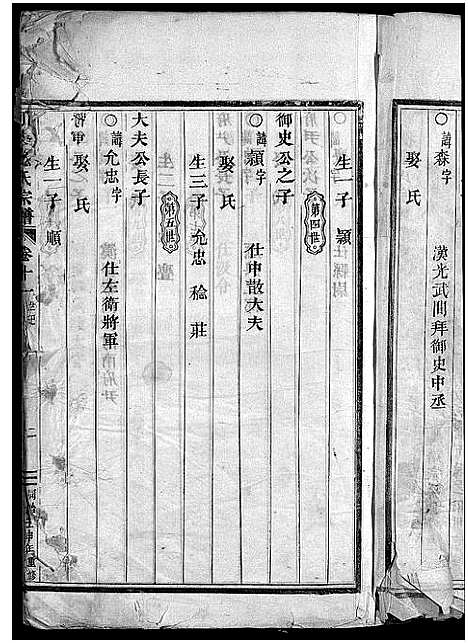 ○諱森字 漢光武間拜御史中丞
娶氏
生一子 潁
第四世
御史公之子
○諱潁字 仕中散大夫
娶氏
生三子 允忠 稔 莊
第五世
大夫公長子
○諱允忠字 仕左衛將軍
娶氏
生一子 順
將軍
氏宗譜 卷十一
重修